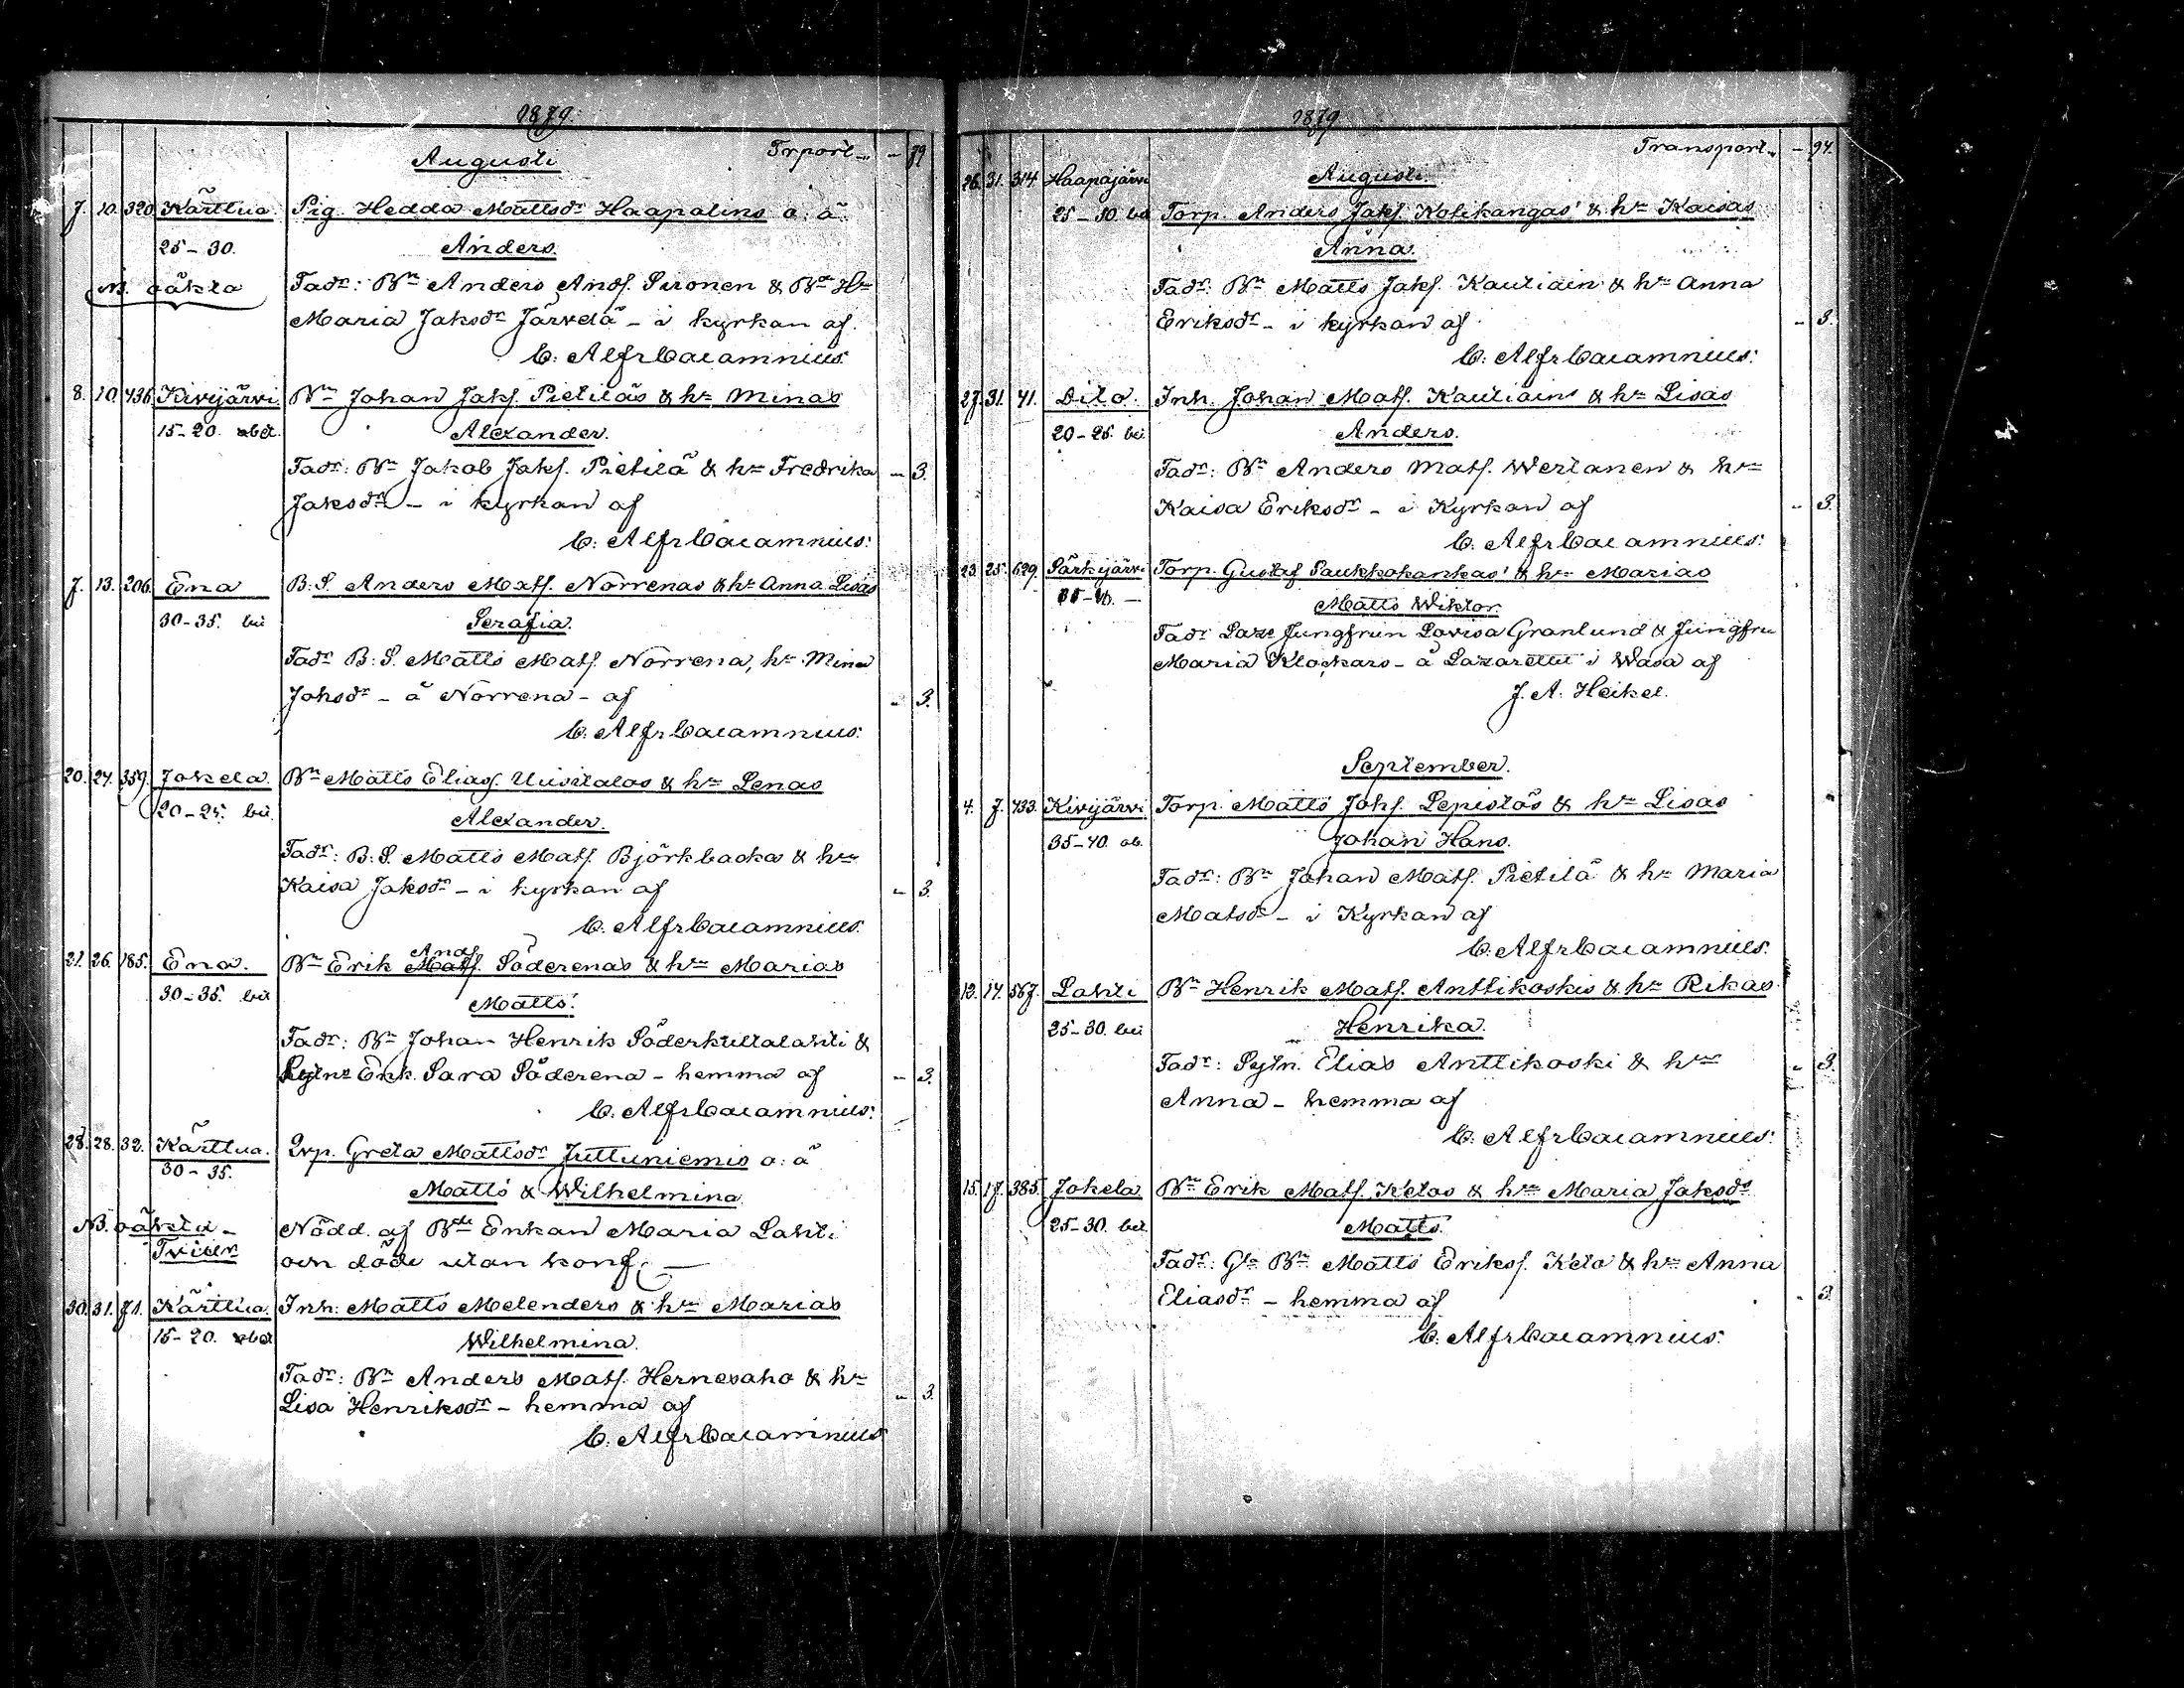 1879.
Augusti Trport - 79
7. 10. 320 Kärttua. Pig. Hedda Mattsdr Haapalins o: ä
25-30. Anders.
N. oäkta Fadr: Bn Anders Andf. Sironen & Bd Hn
Maria Jaksdr Järvelä - i kyrkan af
C: Alfr Cacamnius.
8. 10. 436 Kivijärvi. Bn Johan Jakf. Pietiläs & hn Minas
15-20. obet. Alexander.
Fadr: Bn Jakob Jakf. Pietilä & hn Fredrika - 3.
Jaksdr - i kyrkan af
C: Alfr Cacamnius.
7. 13. 206. Ena B: S. Anders Matf. Norrenas & hn Anna Lisas
30-35. bei Serafia.
Fadr B: S. Matts Matf. Norrena, hn Mina
Johsdr - å Norrena - af - 3.
C: Alfr Cacamnius.
20. 24. 359. Jokela. Bn Matts Eliasf. Uusitalos & hn Lenas
20-25. bei Alexander.
Fadr: B: S. Matts Matf. Björkbacka & hn
Kaisa Jaksdr - i kyrkan af - 3.
C: Alfr Cacamnius.
Andf.
21. 26. 185. Ena. Bn Erik Matf. Söderenas & hn Marias
30-35. bei Matts.
Fadr: Bn Johan Henrik Söderkultalahti &
Sytns Enk. Sara Söderena - hemma af - 3.
C: Alfr Cacamnius.
28. 28. 32. Kärttua. Qvp. Greta Mattsdr Juttuniemis o: ä
30-35. Matts & Wilhelmina.
N. oäkta - Nödd. af Bde Enkan Maria Lahti
Tviller och döde utan konf. -
30. 31. 71. Kärttua. Inh: Matts Melenders & hn Marias
15-20. obet Wilhelmina.
Fadr: Bn Anders Matf. Hernesaho & hn
Lisa Henriksdr - hemma af - 3.
C: Alfr Cacamnius
1879
Transport - 94.
26. 31. 314 Haapajärvi Augusti.
25-30. bei Torp. Anders Jakf. Kotikangas' & hn Kaisas
Anna.
Fadr: Bn Matts Jakf. Kautiain & hn Anna
Eriksdr - i kyrkan af - 3.
C: Alfr Cacamnius.
27. 31. 41. Dito. Inh. Johan Matf. Kautiains & hn Lisas
20-25. bei Anders.
Fadr: Bn Anders Matf. Wertanen & hn
Kaisa Eriksdr - i Kyrkan af - 3.
C: Alfr Cacamnius.
23. 25. 629. Särkijärvi Torp. Gustaf Paukkokankas' & hn Marias
Matts Wiktor.
Fadr Jungfrun Lovisa Granlund & Jungfru
Maria Klockars - å Lazarettet i Wasa af
J. A. Heikel.
September.
4. 7. 433. Kivijärvi Torp. Matts Johf. Lepistös & hn Lisas
35-40. ob. Johan Hans.
Fadr: Bn Johan Matf. Pietilä & hn Maria
Matsdr - i Kyrkan af
C: Alfr Cacamnius.
12. 14. 567. Lahti Bn Henrik Matf. Anttikoskis & hn Rikas
25-30. bei Henrika.
Fadr: Sytn. Elias Anttikoski & hn - 3.
Anna - hemma af
C: Alfr Cacamnius.
15. 17. 385. Jokela Bn Erik Matf. Ketos & hn Maria Jaksdr
25-30. bei Matts.
Fadr: Gle Bn Matts Eriksf. Keto & hn Anna
Eliasdr - hemma af - 3.
C: Alfr Cacamnius.